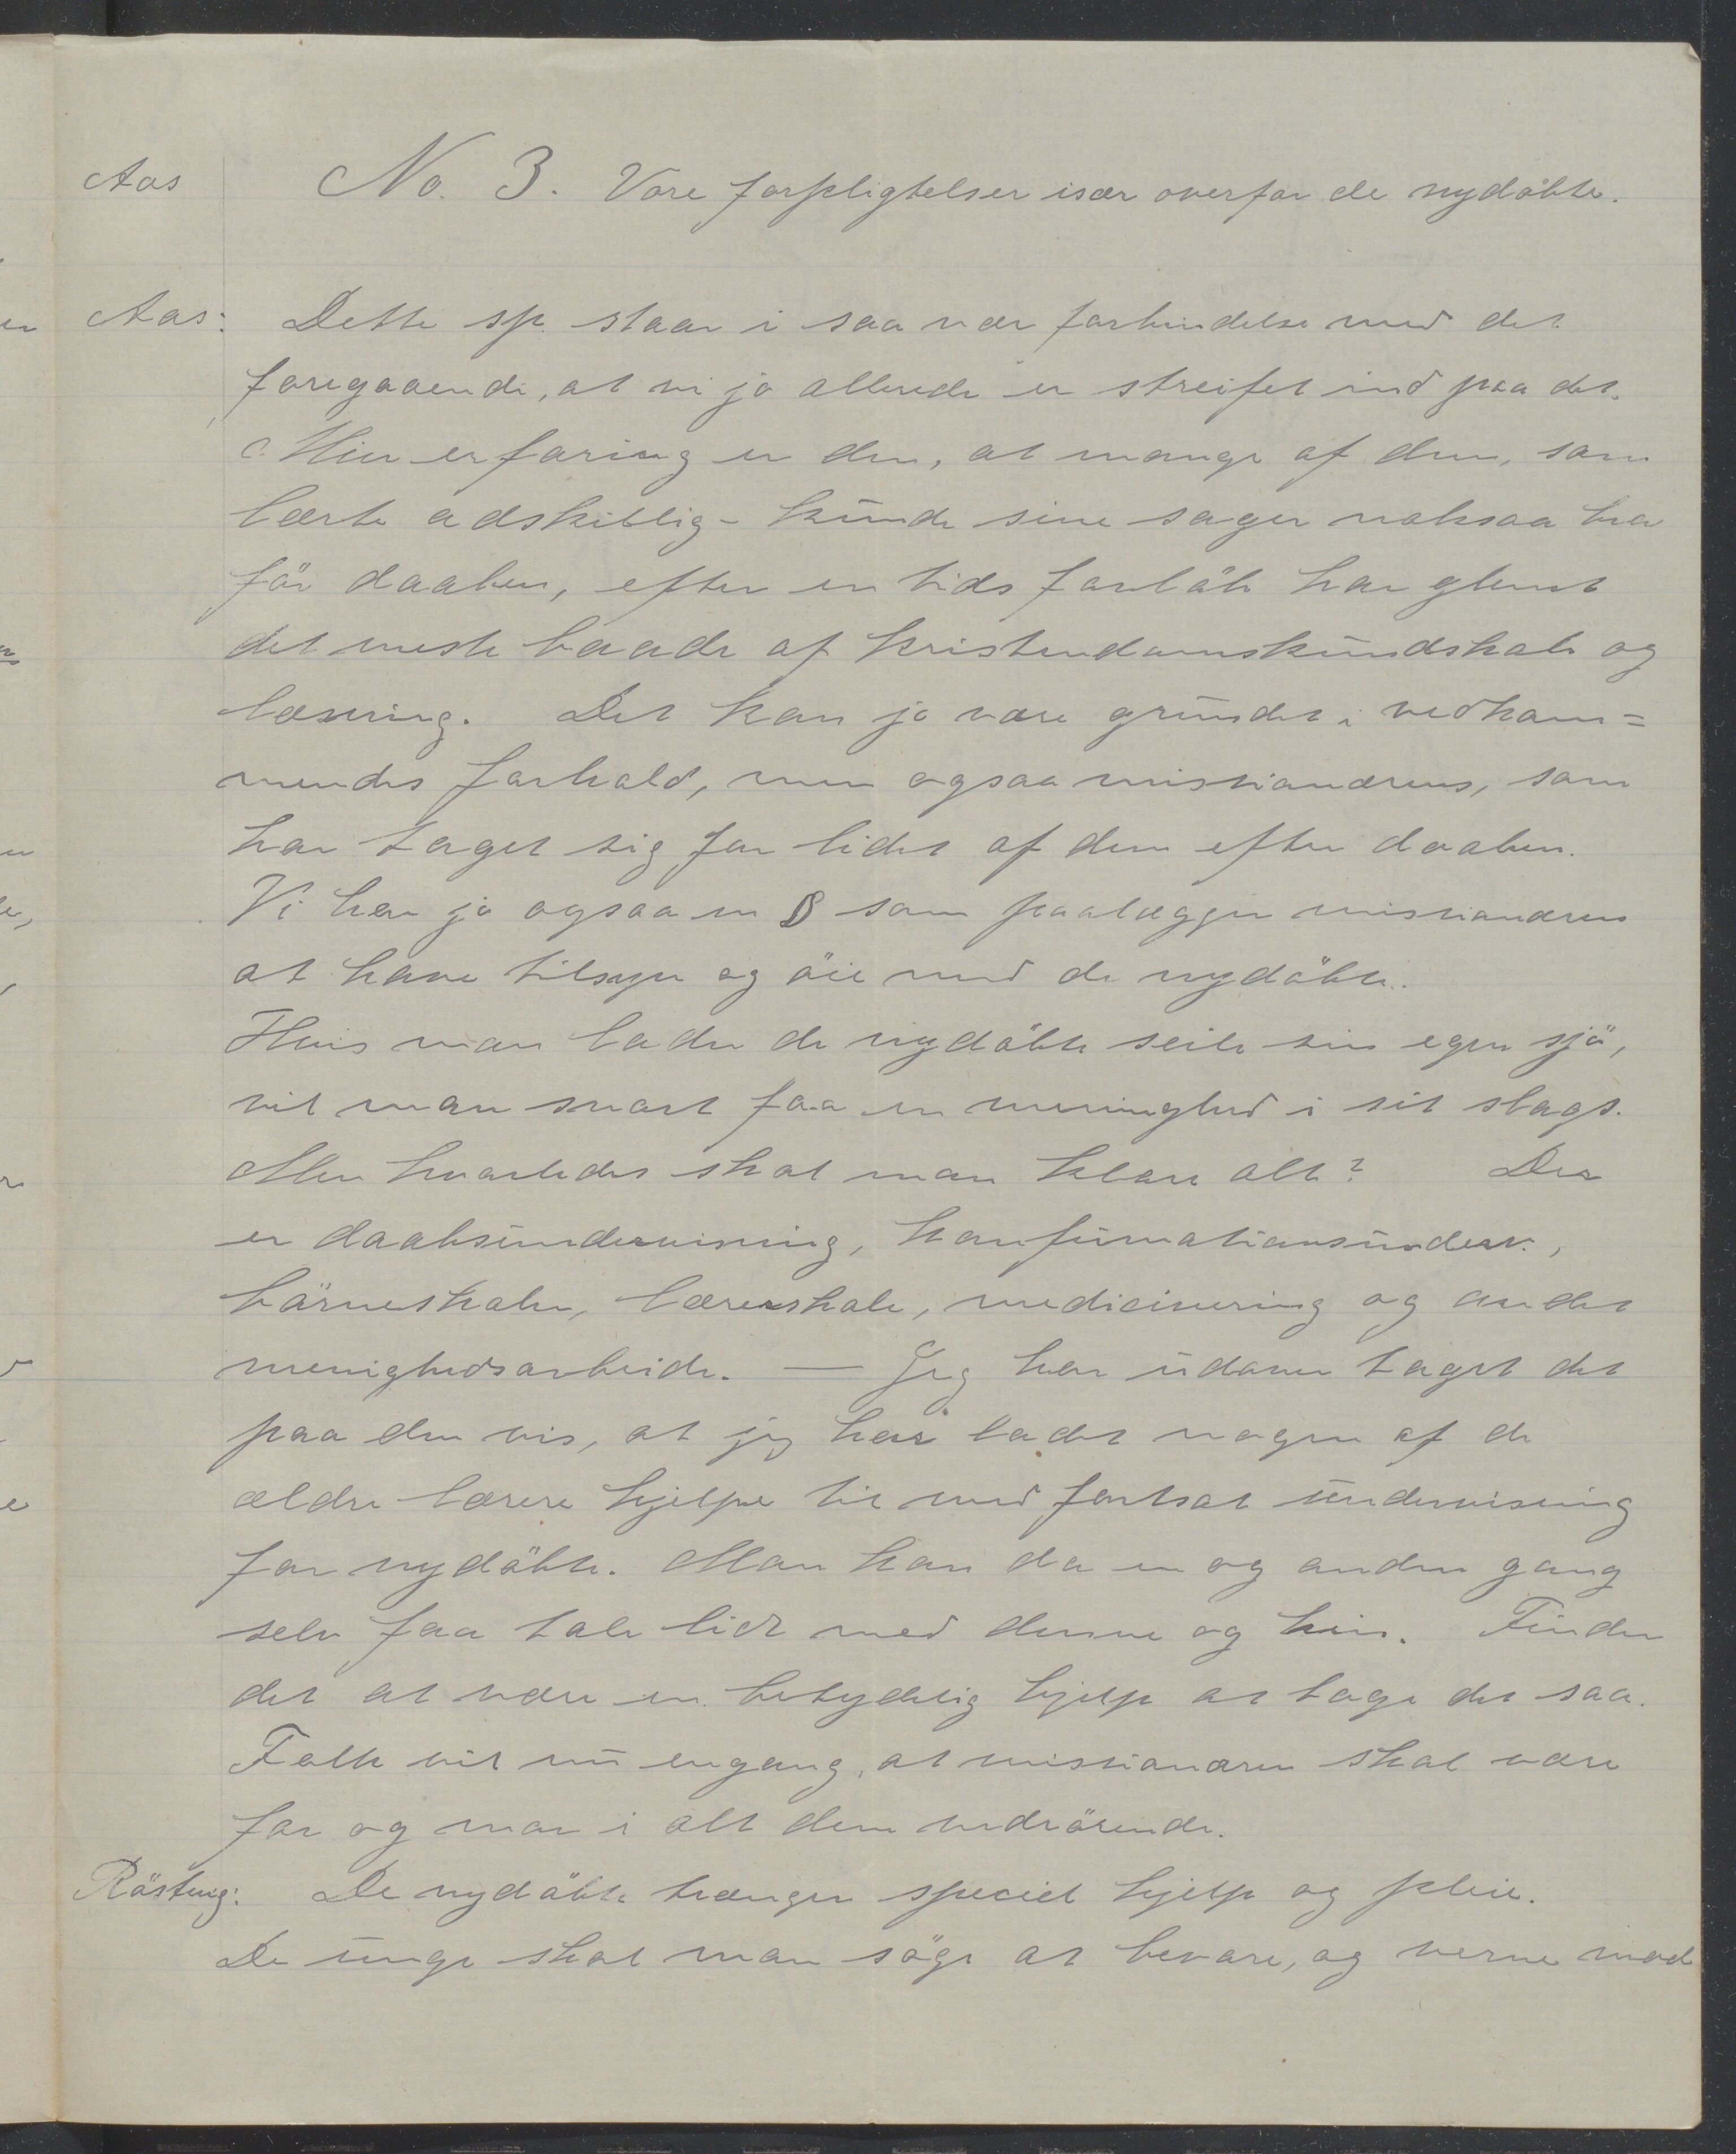 Aas No. 3. Vore forpligtelser især overfor de nydöbte.
Aas: Dette sp. staar i saa nær forbindelse med det
foregaaende, at vi jo allerede er streifet ind paa det.
Min erfaring er den, at mange af dem, som
lærte adskillig - kunde sine sager noksaa bra
för daaben, efter en tids forlöb har glemt
det meste baade af kristendomskundskab og
læsning. Det kan jo være grundet i vedkom=
mendes forhold, men ogsaa missionærens, som
har taget sig for lidet af dem efter daaben.
Vi har jo ogsaa en § som paalægger missionæren
at have tilsyn og öie med de nydöbte.
Hvis man lader de nydöbte seile sin egen sjö,
vil man snart faa en meninghed i sit slags.
Men hvorledes skal man klare alt? Der
er daabsundervisning, konfirmationsunderv.,
börneskolen, lærerskole, medicinering og andet
menighedsarbeide. — Jeg har udover taget det
paa den vis, at jeg har ladet nogen af de
ældre lærere hjelpe til med fortsat undervisning
for nydöbte. Man kan da en og anden gang
selv faa tale lidt med denne og hin. Finder
det at være en betydelig hjelp at tage det saa.
Folk vil nu engang, at missionæren skal være
far og mor i alt dem vedrörende.
Röstvig: De nydöbte trænger speciel hjelp og pleie.
De unge skal man söge at bevare, og verne mod